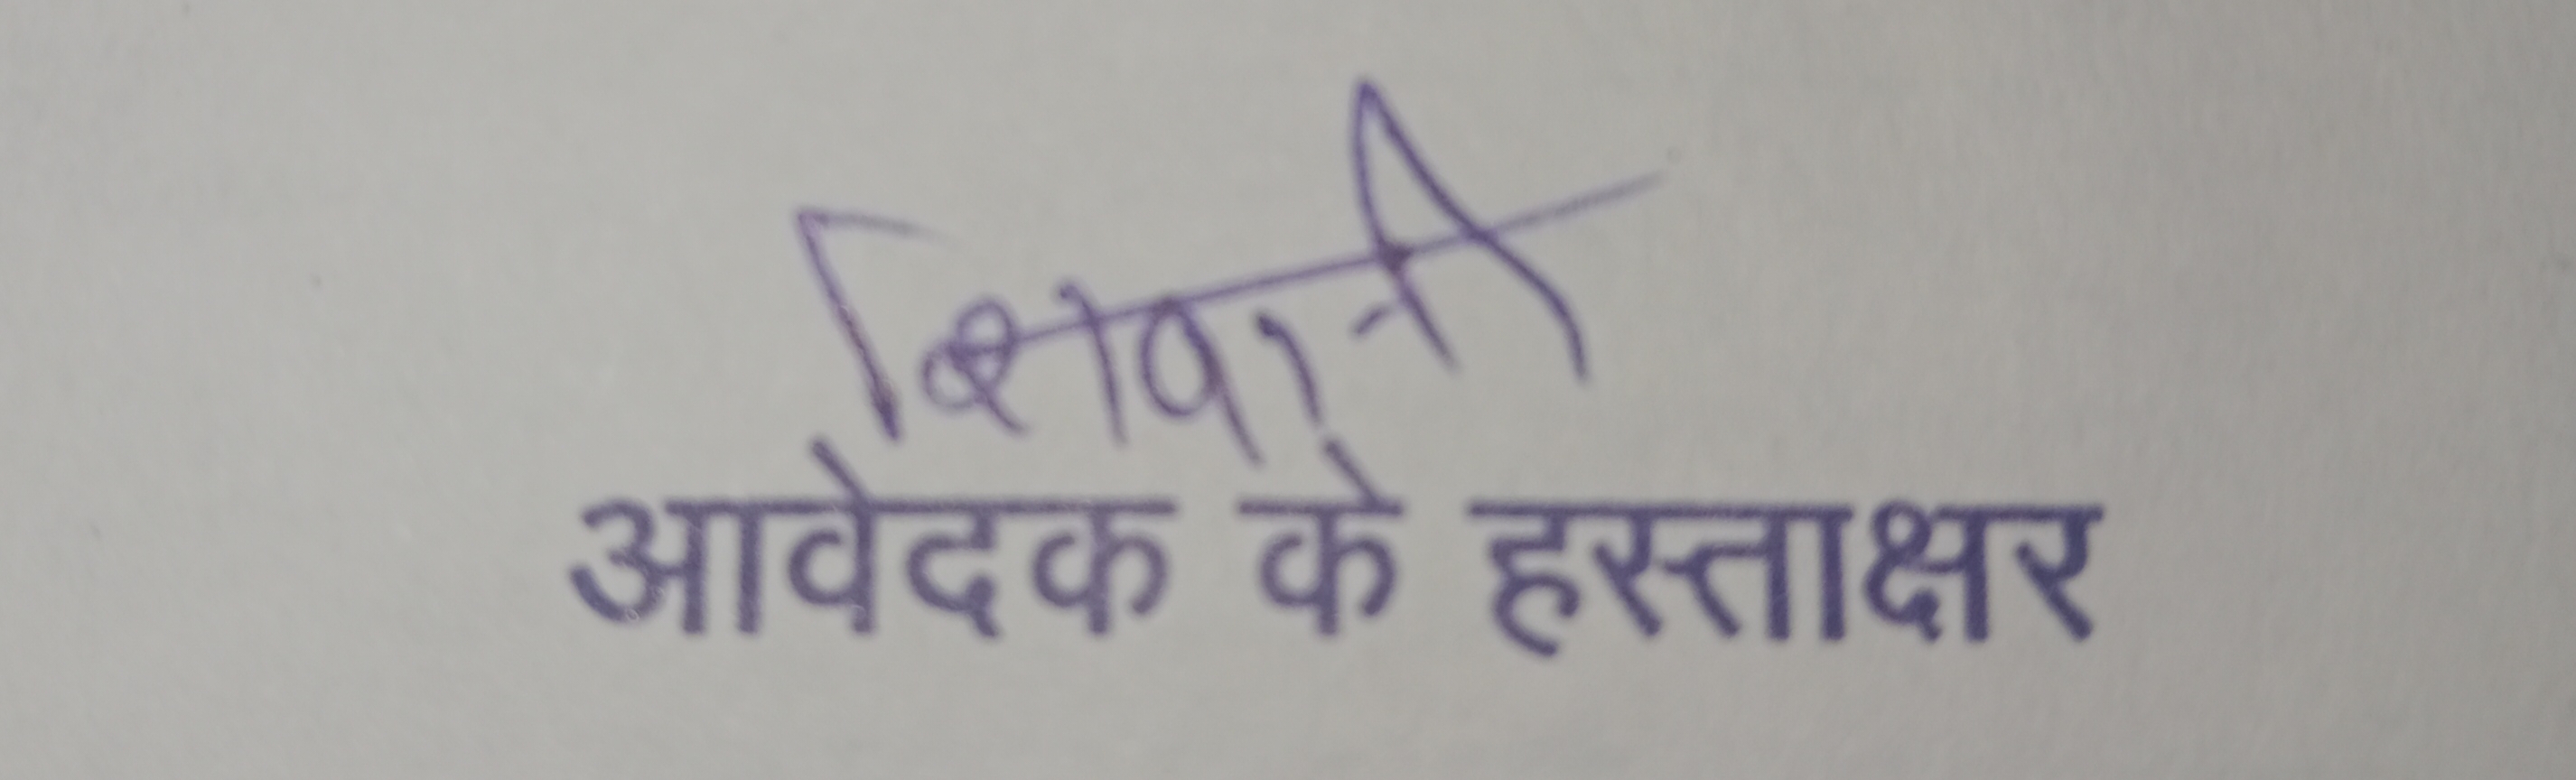 शिवानी
आवेदक के हस्ताक्षर